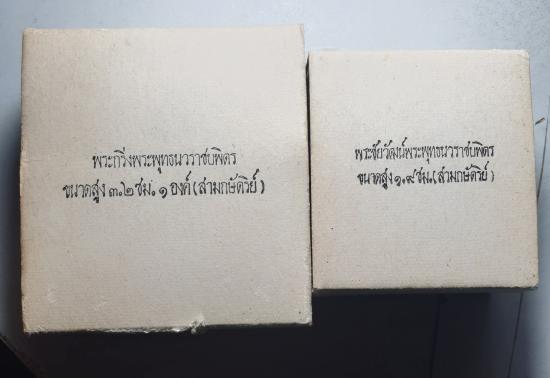 พระกริ่งพระพุทธนวราชบพิตร
ขนาดสูง ๓.๒ ซม. ๑ องค์ (สามกษัตริย์)
พระชัยวัฒน์พระพุทธนวราชบพิตร
ขนาดสูง ๑.๙ ซม. (สามกษัตริย์)